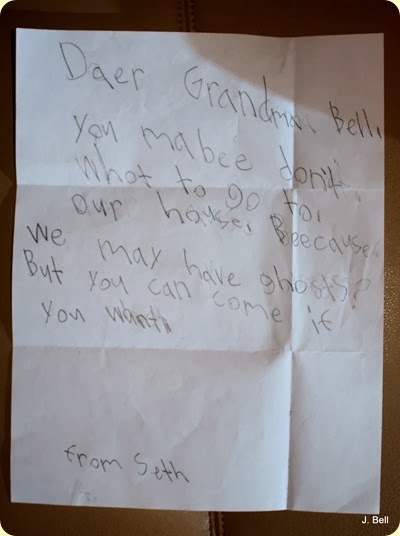 Daer Grandma Bell,
you mabee don't.
Whot to go to,
our house. Beecause.
we may have ghosts?
But you can come if
you want.
from Seth
J. Bell